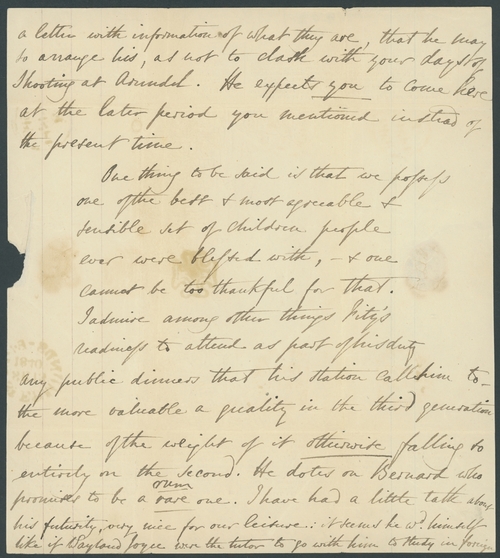 a letter with information of what they are, that he may
to arrange his, as not to clash with your days of
Shooting at Arundel. He expects you to come here
at the later period you mentioned instead of
the present time.
One thing to be said is that we possess
one of the best & most agreeable &
sensible set of children people
ever were blessed with, - & one
cannot be too thankful for that.
I admire among other things Fitz's
readiness to attend as part of his duty
any public dinners that his station calls him to -
the more valuable a quality in the third generation
because of the weight of it otherwise falling so
entirely on the second. He dotes on Bernard who
promises to be a rare one. I have had a little talk about
his futurity, very nice for our leisure: it seems he wd himself
like if Wayland Joyce were the tutor to go with him to study in